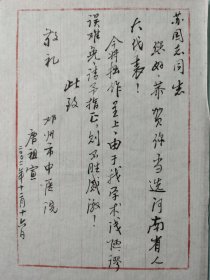 苏国志同志
您好，恭贺您当选河南省人
大代表！
今将拙作呈上，由于我学术浅陋，谬
误难免，请予指正，则不胜感激！
此致
敬礼
邓州市中医院
唐祖宣
二〇〇二年十二月十六日